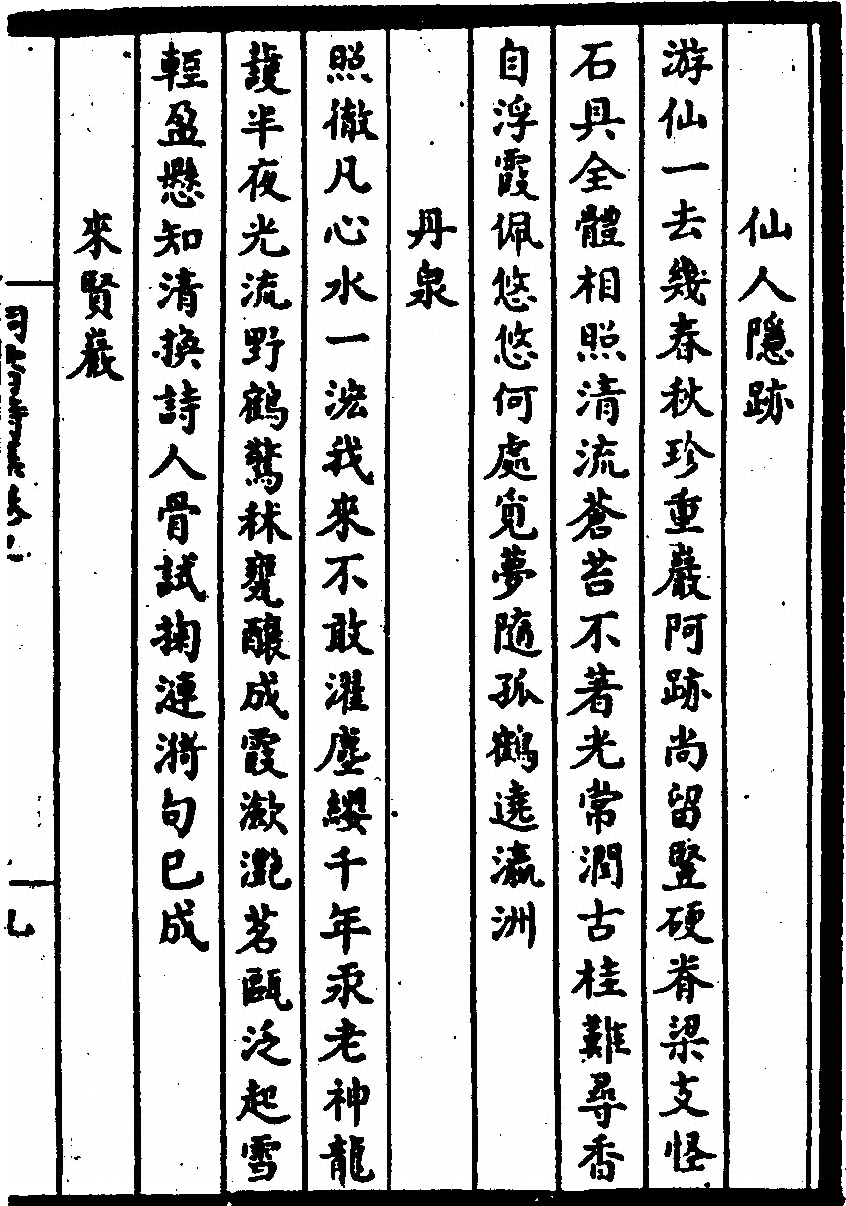 仙人隱跡
游仙一去幾春秋珍重巖阿跡尚留豎硬脊梁支怪
石具全體相照清流蒼苔不著光常潤古桂難尋香
自浮霞佩悠悠何處覓夢隨孤鶴遶瀛洲
丹泉
照徹凡心水一泓我來不敢濯塵纓千年汞老神龍
護半夜光流野鶴驚秫甕釀成霞瀲灔茗甌泛起雪
輕盈懸知清換詩人骨試掬漣漪句已成
來賢巖